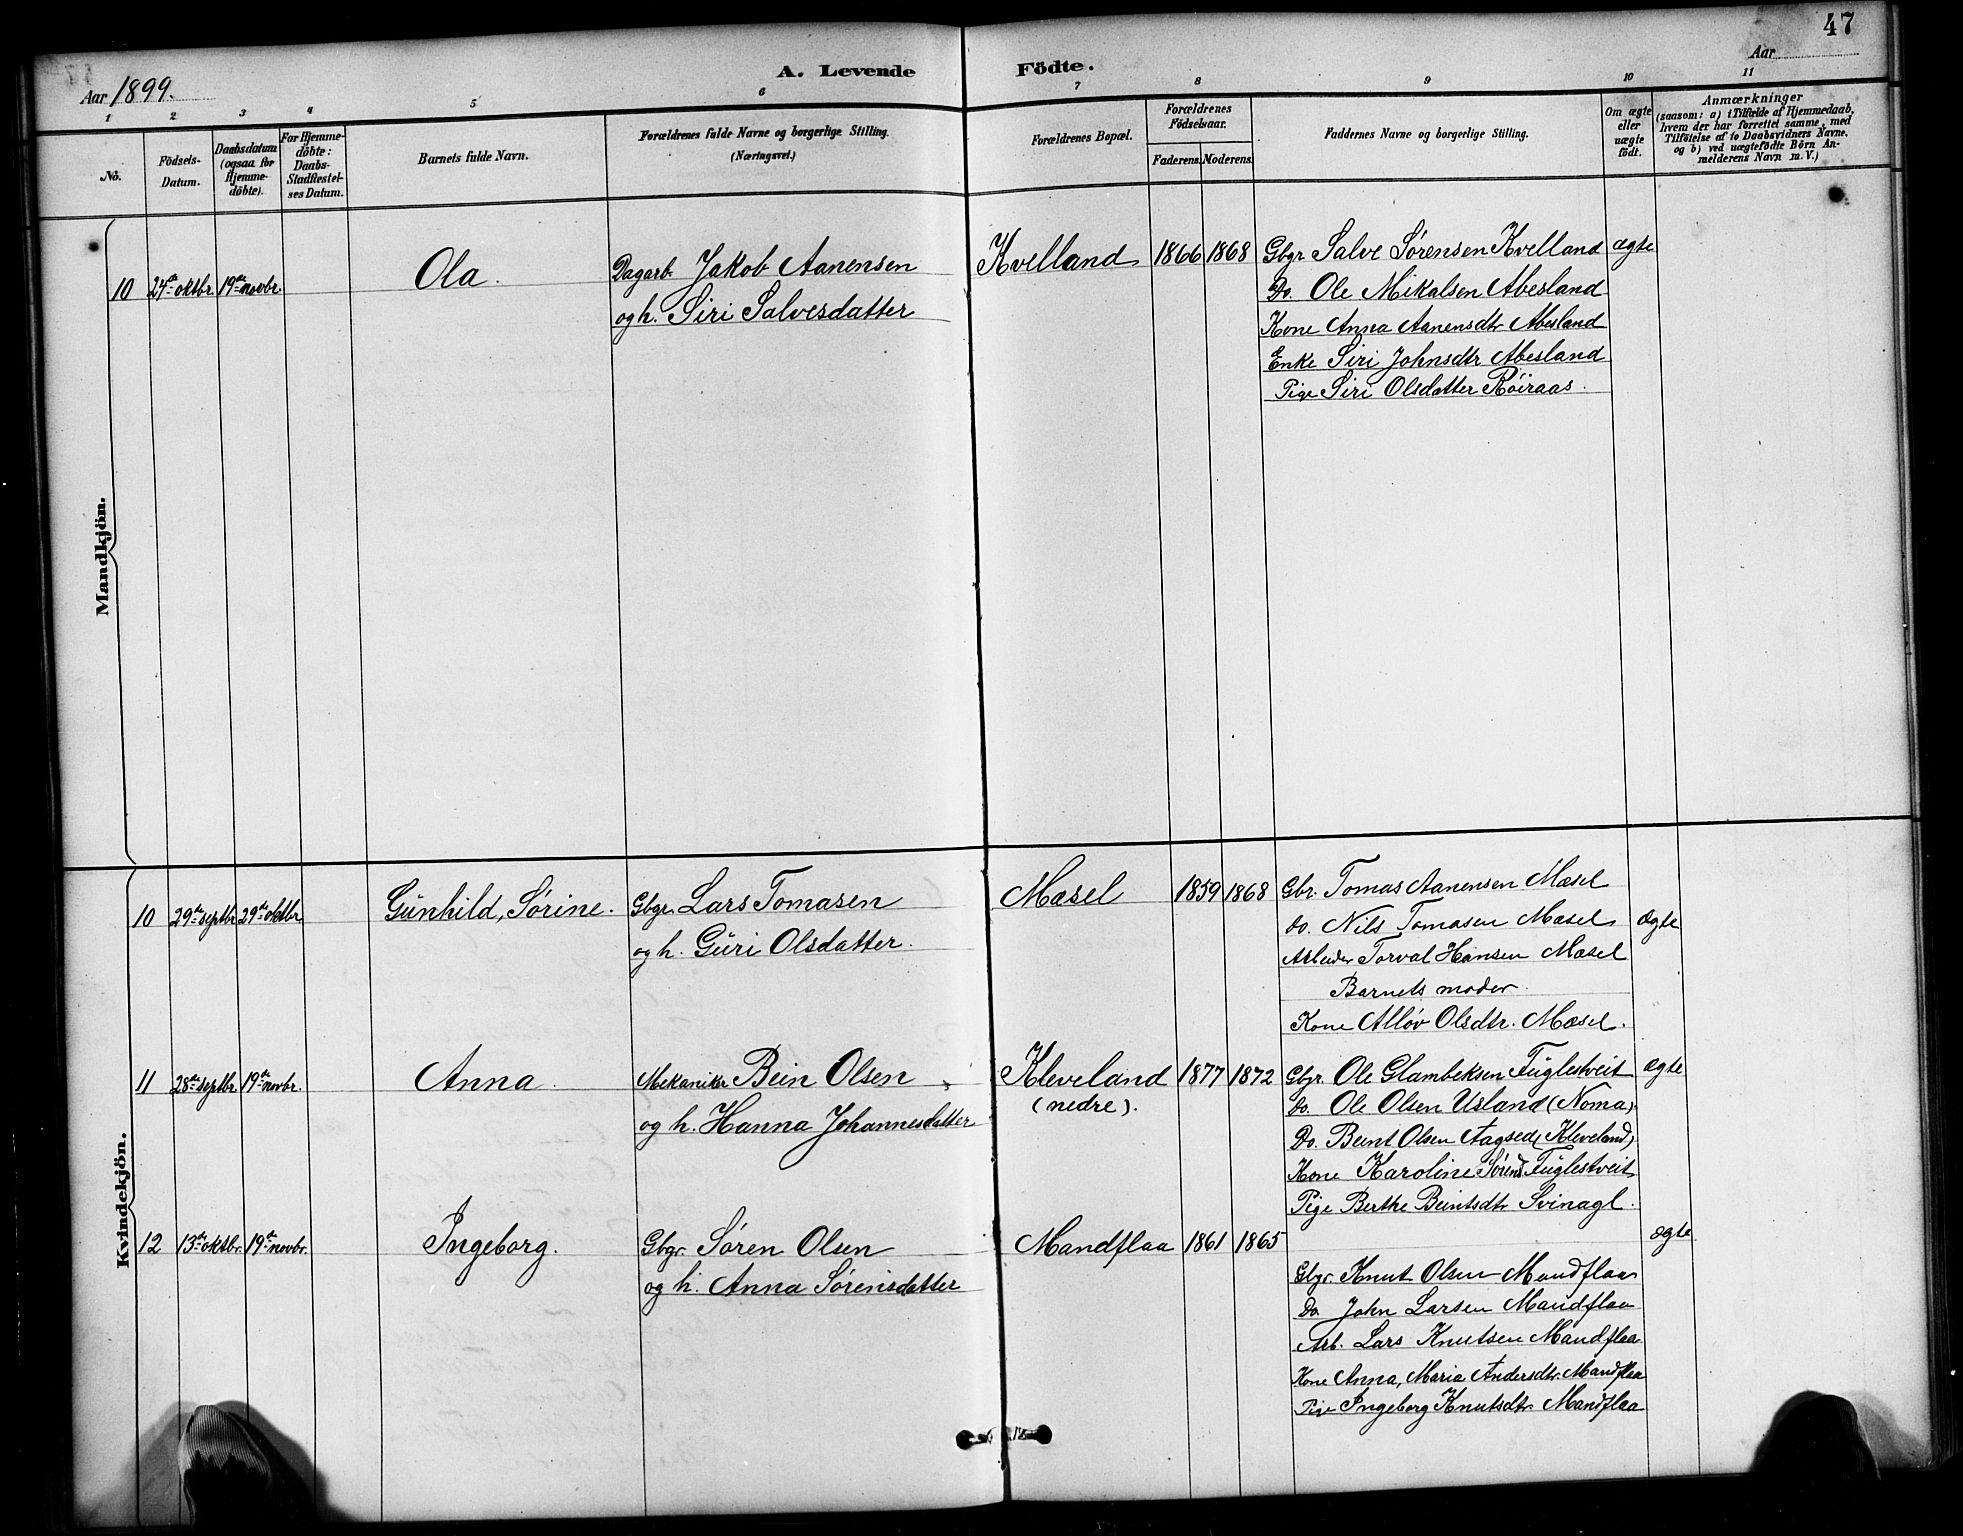 47
Aar 1899.
A. Levende Födte.
Aar
1 2 3 4 5 6 7 8 9 10 11
No.
Födsels-Datum.
Daabsdatum (ogsaa for Hjemme-döbte).
For Hjemme-döbte: Daabs-Stadfæstel-ses Datum.
Barnets fulde Navn.
Forældrenes fulde Navne og borgerlige Stilling. (Næringsvei.)
Forældrenes Bopæl.
Forældrenes Födselsaar.
Faderens. Moderens.
Faddernes Navne og borgerlige Stilling.
Om ægte eller uægte födt.
Anmærkninger
(saasom: a) i Tilfælde af Hjemmedaab, hvem der har forrettet samme, med Tilföielse af to Daabsvidners Navne. og b) ved uægtefödte Börn An-melderens Navn m. V.)
Mandkjön.
10 24de oktbr. 19de novbr. Ola. Dagarb. Jakob Aanensen
og h. Siri Salvesdatter
Kvelland 1866 1868
Gbgr Salve Sørensen Kvelland ægte
Do. Ole Mikalsen Abesland
Kone Anna Aanensdtr Abesland
Enke Siri Johnsdtr Abesland
Pige Siri Olsdatter Röiraas.
Kvindekjön.
10 29de septbr 29de oktbr Gunhild, Sørine. Gbgr. Lars Tomasen
og h. Guri Olsdatter.
Mæsel 1859 1868
Gbr. Tomas Aanensen Mæsel
do. Nils Tomasen Mæsel ægte
Arbeider Torval Hansen Mæsel
Barnets moder
Kone Alløv Olsdtr. Mæsel.
11 28de septbr 19de novbr. Anna. Mekaniker Bein Olsen
og h. Hanna Johannesdatter
Kleveland (nedre). 1877 1872
Gbgr. Ole Glambeksen Fuglestveit ægte
do. Ole Olsen Usland (Noma)
Do. Beint Olsen Aagsed (Kleveland)
Kone Karoline Sørensd Fuglestveit
Pige Berthe Beintsdtr Svinagl.
12 13de oktbr. 19de novbr. Ingeborg. Gbgr. Søren Olsen
og h. Anna Sørensdatter
Mandflaa 1861 1865 ægte
Gbgr. Knut Olsen Mandflaa
Do. John Larsen Mandflaa
Arb. Lars Knutsen Mandflaa
Kone Anna, Maria Andersdtr. Mandflaa
Pige Ingeborg Knutsdtr Mandflaa